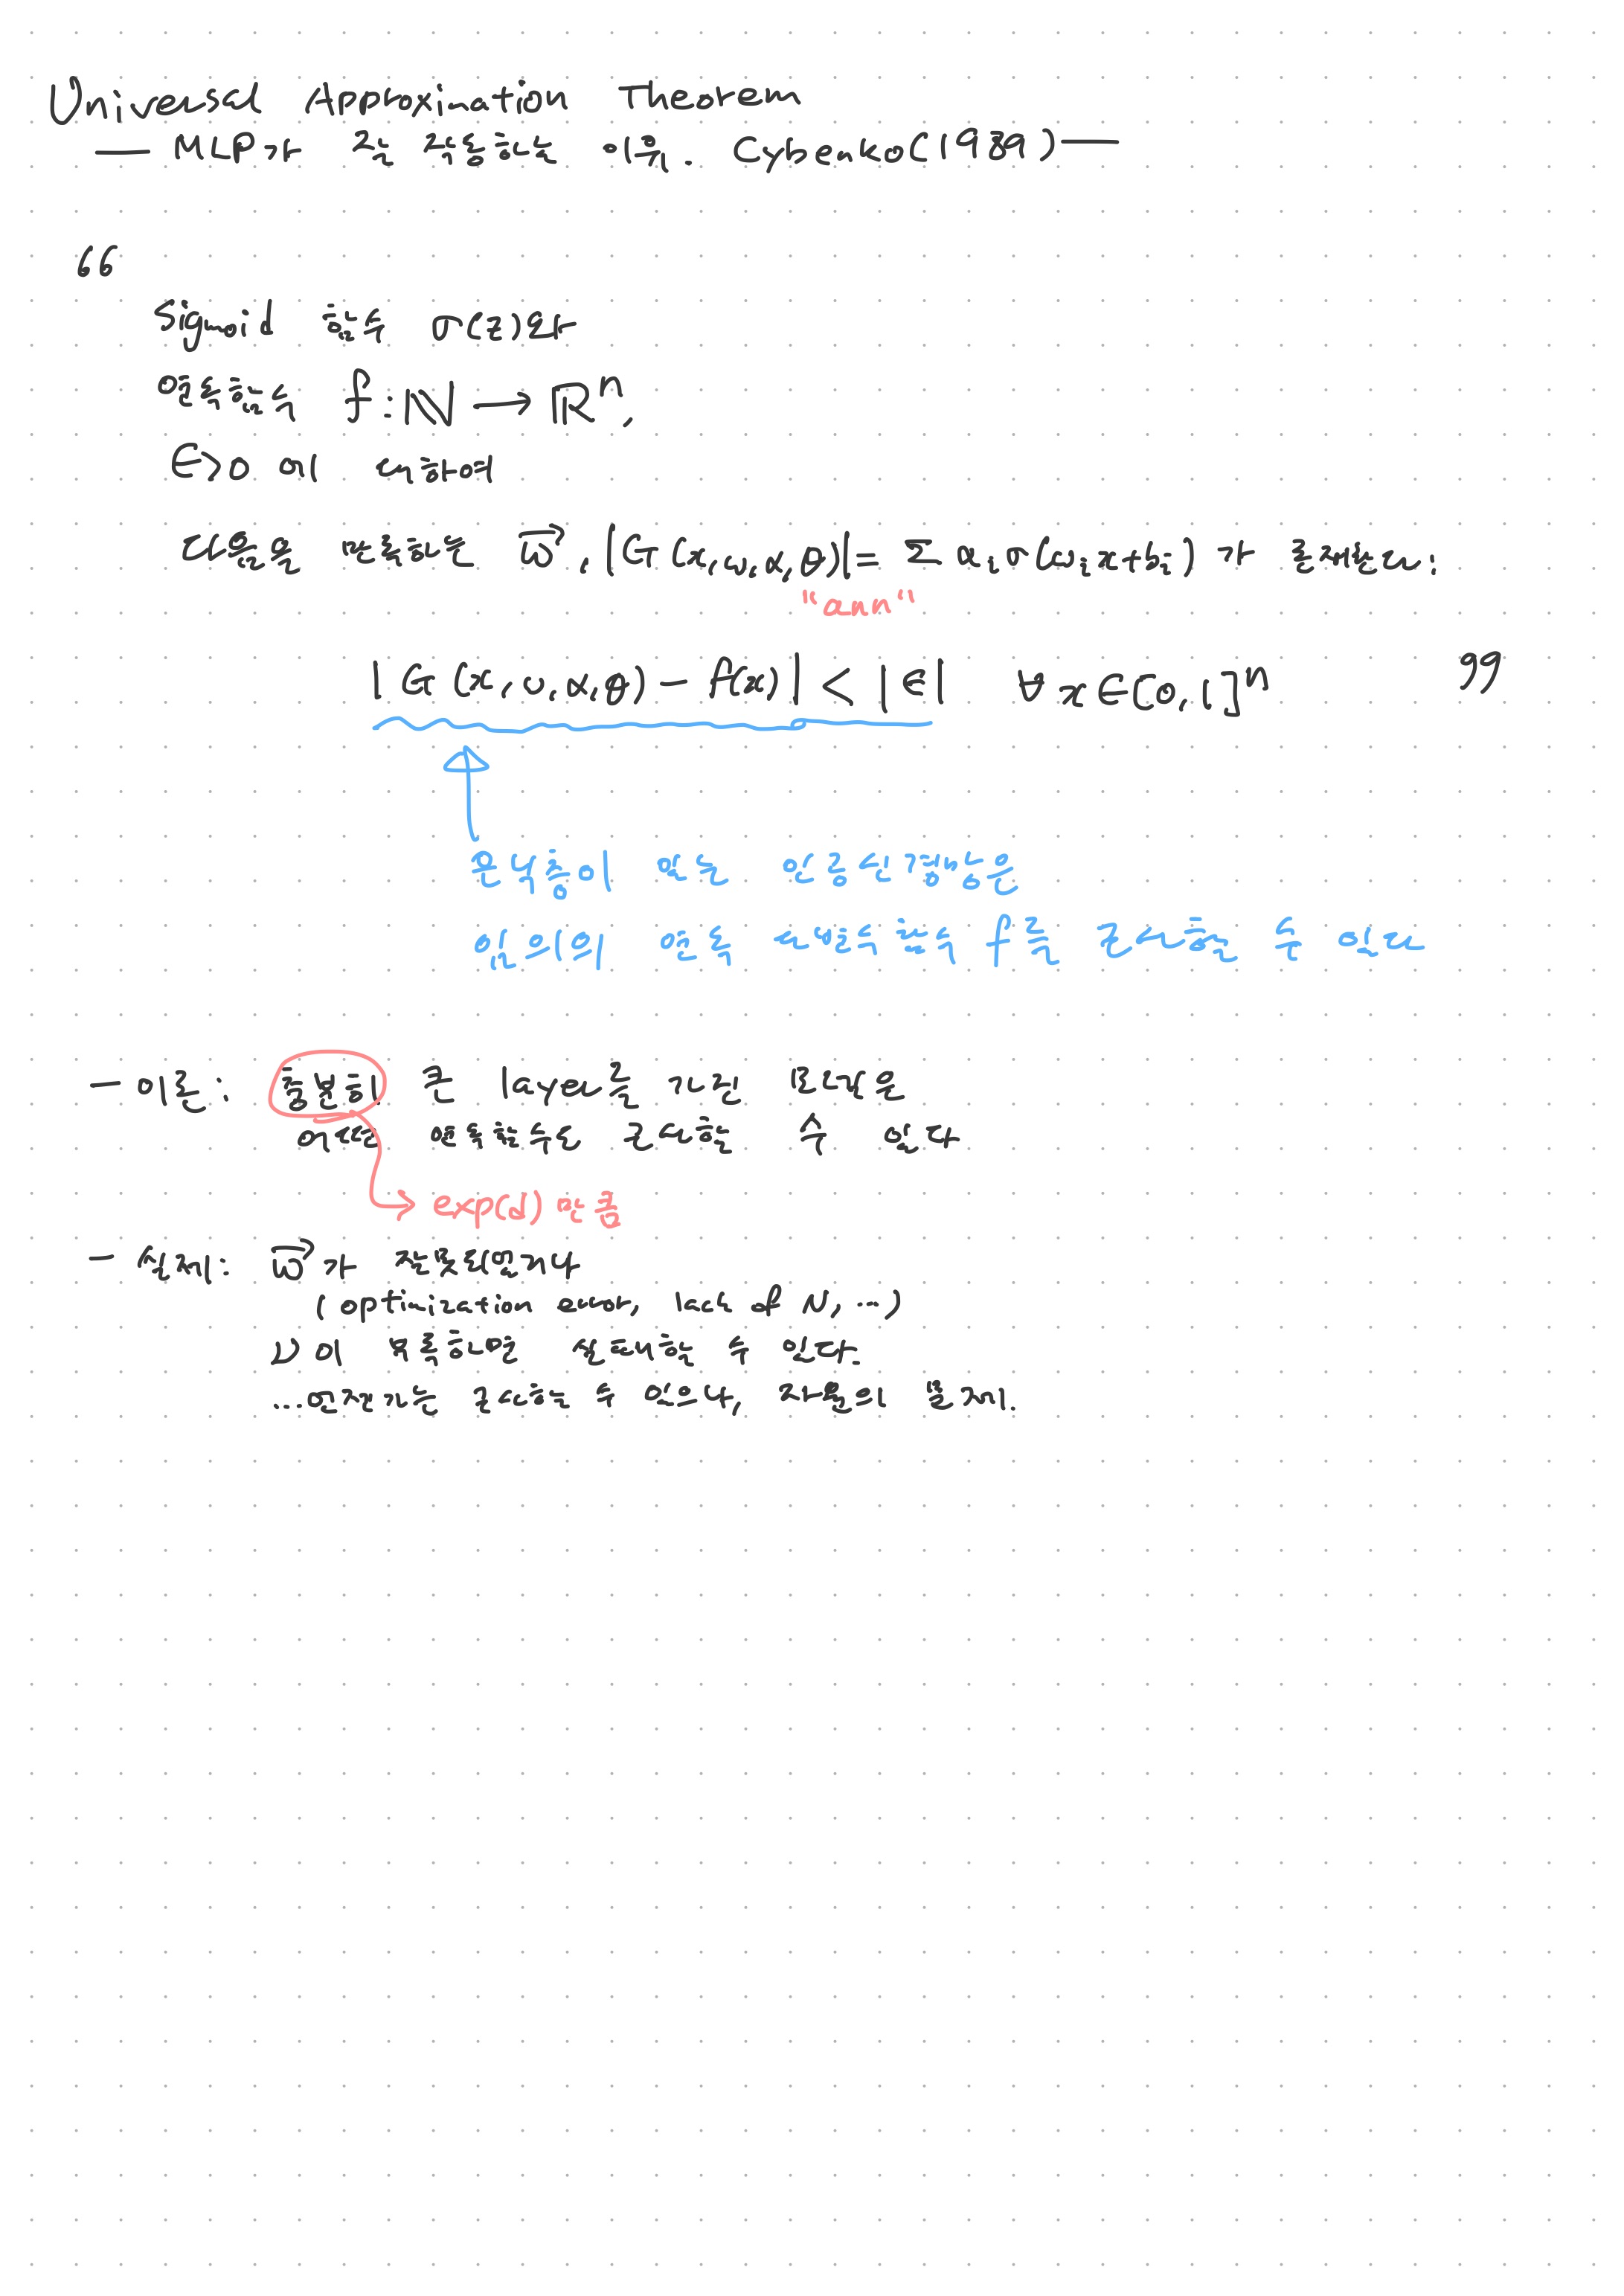 Universal Approximation Theorem
— MLP가 잘 작동하는 이유. Cybenko(1989) —
“
Sigmoid 함수 σ(z)와
연속함수 f: ℕ → ℝⁿ,
ϵ>0 에 대하여
다음을 만족하는 w⃗, |G(x,w,α,θ)| = Σ αᵢσ(wᵢx+bᵢ) 가 존재한다:
"ann"
|G(x,w,α,θ) − f(x)| < |ϵ| ∀x∈[0,1]ⁿ ”
은닉층이 있는 인공신경망은
임의의 연속 다변수함수 f를 근사할 수 있다
— 이론: 충분히 큰 layer를 가진 모델은
어떤 연속함수도 근사할 수 있다
exp(d) 만큼
— 실제: w⃗가 잘못되었거나
(optimization error, lack of N, ...)
이 부족하면 실패할 수 있다.
...언젠가는 근사할 수 있으나, 자원의 문제.